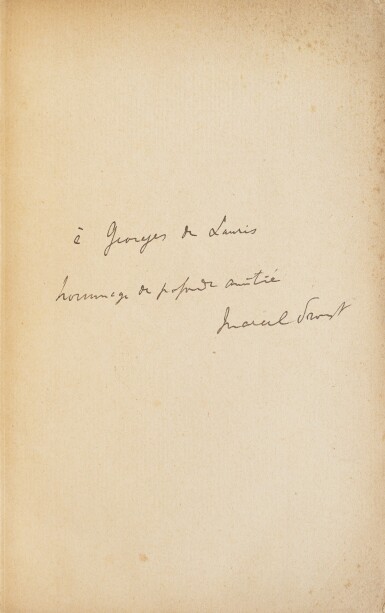 à Georges de Lauris
hommage de profonde amitié
Marcel Proust